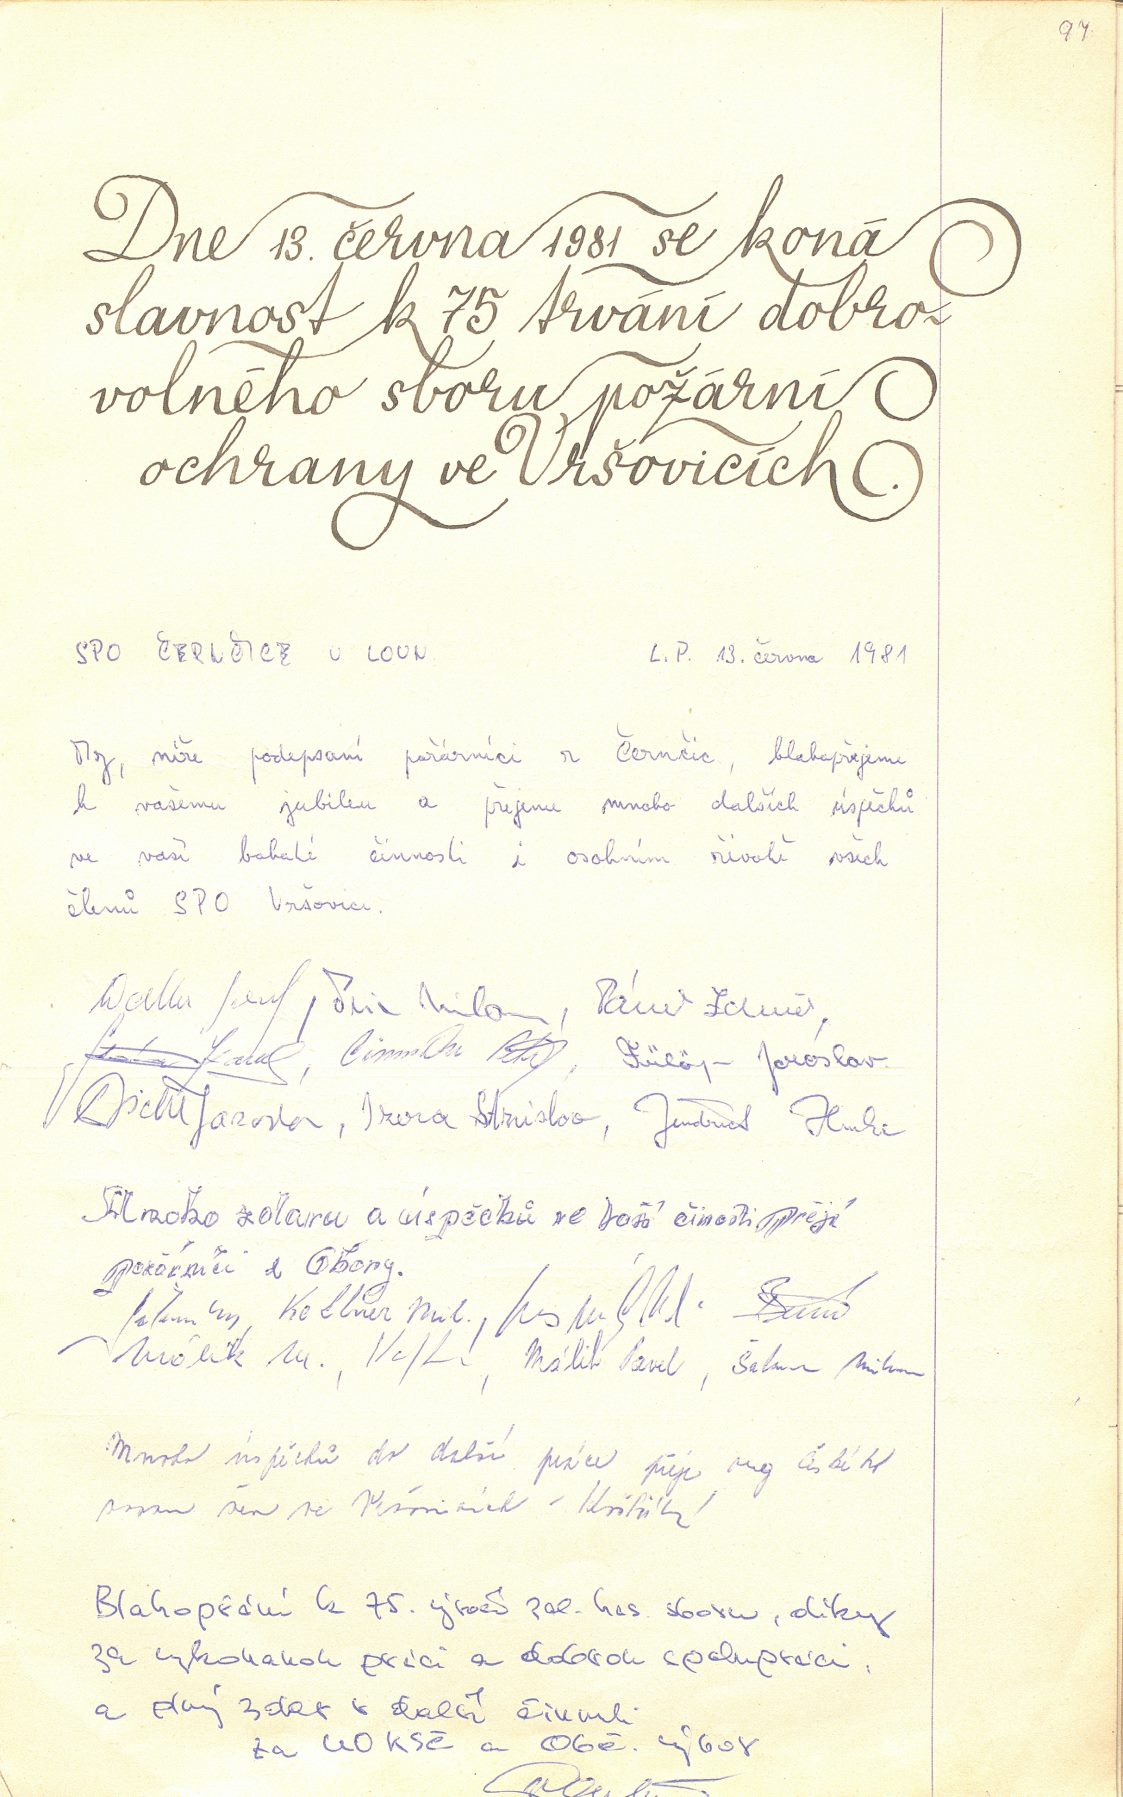 97
Dne 13. června 1981 se koná
slavnost k 75 trvání dobro-
volného sboru požární
ochrany ve Vršovicích.
SPO ČERNČICE U LOUN L.P. 13. června 1981
My, níže podepsaní požárníci z Černčic, blahopřejeme
k vašemu jubileu a přejeme mnoho dalších úspěchů
ve vaší bohaté činnosti i osobním životě všech
členů SPO Vršovice.
Milan,
Jaroslav
Jaroslav, Stanislav, Jindřich
Mnoho zdaru a úspěchů ve Vaší činosti přejí
požárníci z Obory.
Kettner Mil.,
M., Málik Pavel, Milan
Mnoho úspěchů do další práce přeje org. českého
svazu žen ve Vršovicích
Blahopřání k 75. výročí zal. has. sboru, díky
za vykonanou práci a dobrou spolupráci,
a plný zdar v další činnosti
za UO KSČ a Obč. výbor